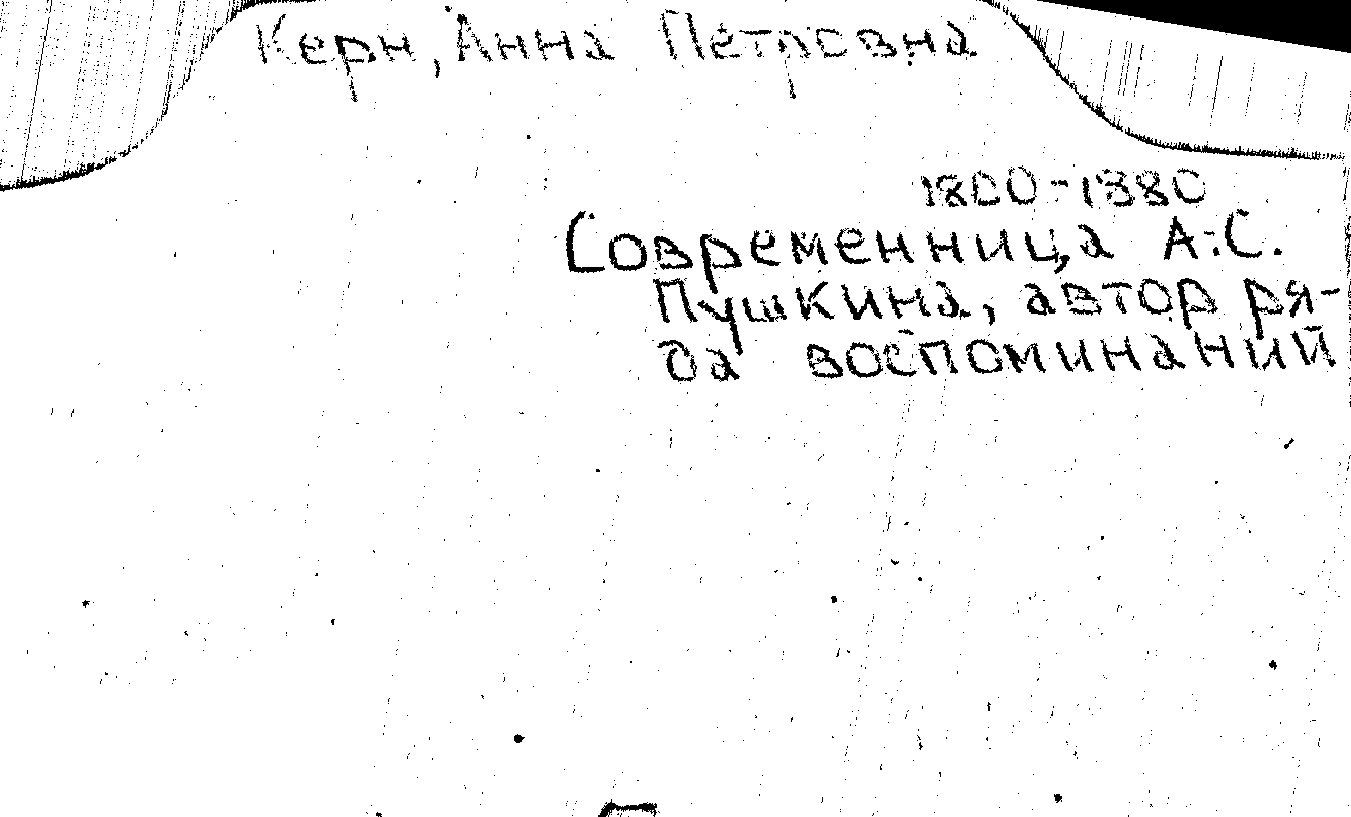 Керн, Анна Петровна
1800-1880
Современница А.С.
Пушкина, автор ря-
да воспоминаний